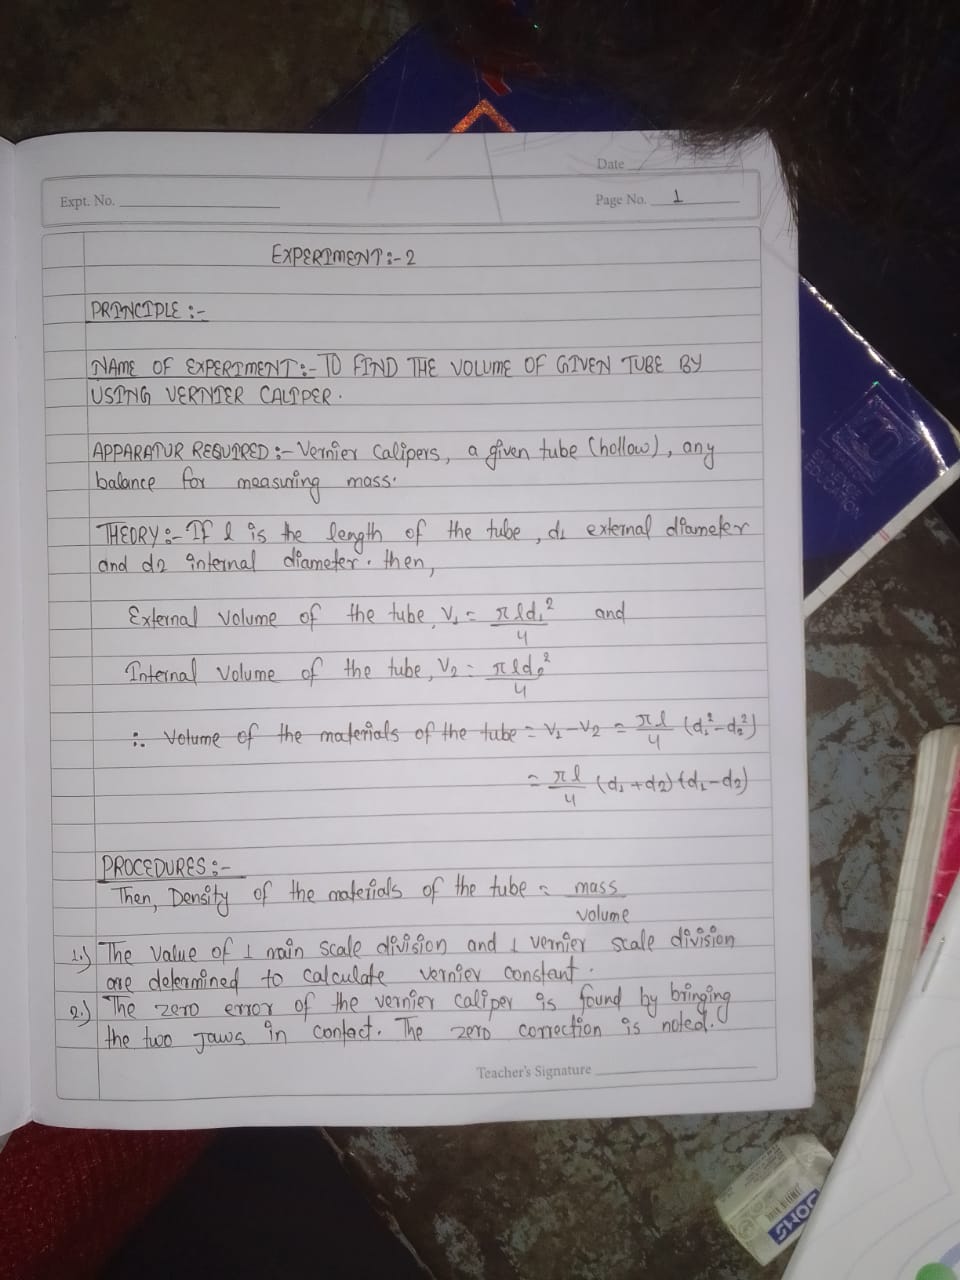 Date
Expt. No.
Page No. 1
EXPERIMENT:- 2
PRINCIPLE :-
NAME OF EXPERIMENT:- TO FIND THE VOLUME OF GIVEN TUBE BY
USING VERNIER CALIPER.
APPARATUR REQUIRED :- Vernier Calipers, a given tube (hollow), any
balance for measuring mass.
THEORY :- If l is the length of the tube, d1 external diameter
and d2 internal diameter. then,
External volume of the tube, V1 = πld1²/4 and
Internal Volume of the tube, V2 = πld2²/4
∴ Volume of the materials of the tube = V1-V2 = πl/4 (d1²-d2²)
= πl/4 (d1+d2)(d1-d2)
PROCEDURES :-
Then, Density of the materials of the tube = mass/volume
1.) The value of 1 main scale division and 1 vernier scale division
are determined to calculate vernier constant.
2.) The zero error of the vernier caliper is found by bringing
the two jaws in contact. The zero correction is noted.
Teacher's Signature
EDUCATION
DOMS